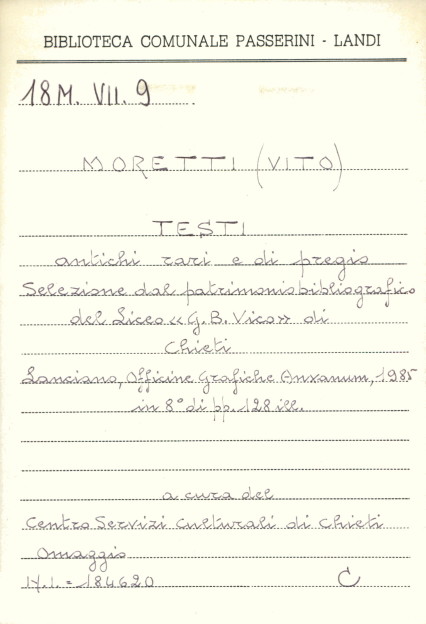 BIBLIOTECA COMUNALE PASSERINI - LANDI
18M. VII. 9
MORETTI (VITO)
TESTI
antichi rari e di pregio
Selezione dal patrimonio bibliografico
del Liceo «G.B. Vico» di
Chieti
Lanciano, Officine Grafiche Anxanum, 1985
in 8° di pp. 128 ill.
a cura del
Centro Servizi Culturali di Chieti
Omaggio
N.I. = 184620 C